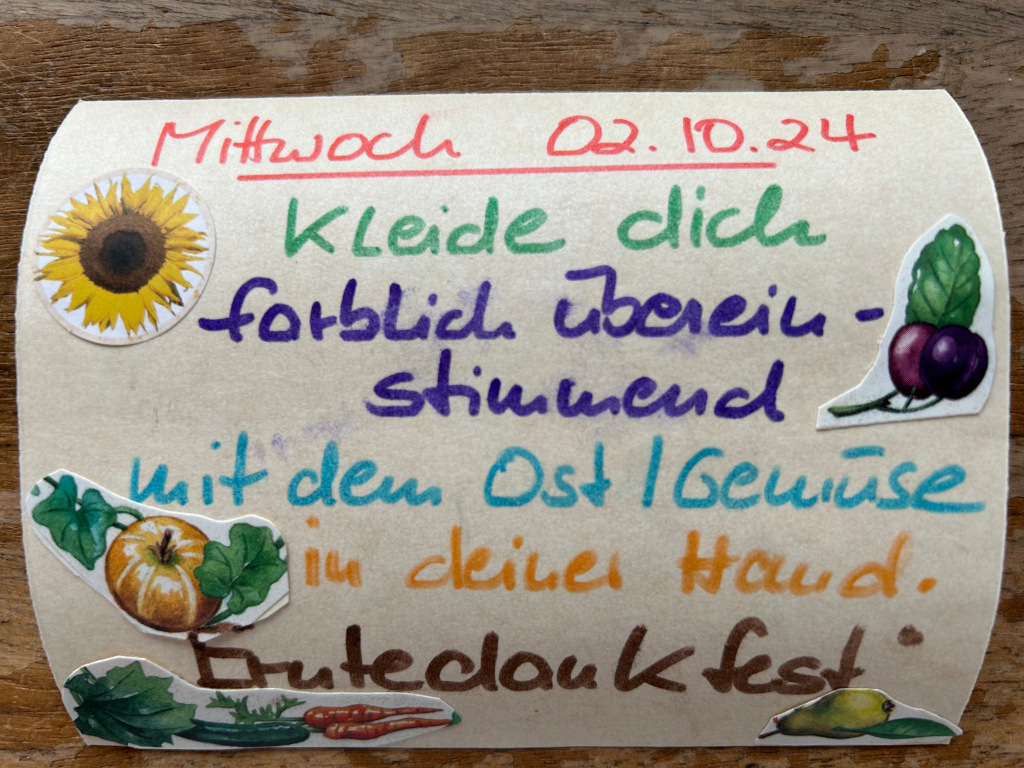 Mittwoch 02.10.24
Kleide dich
farblich überein-
stimmend
mit dem Ost/Gemüse
in deiner Hand.
Erntedankfest